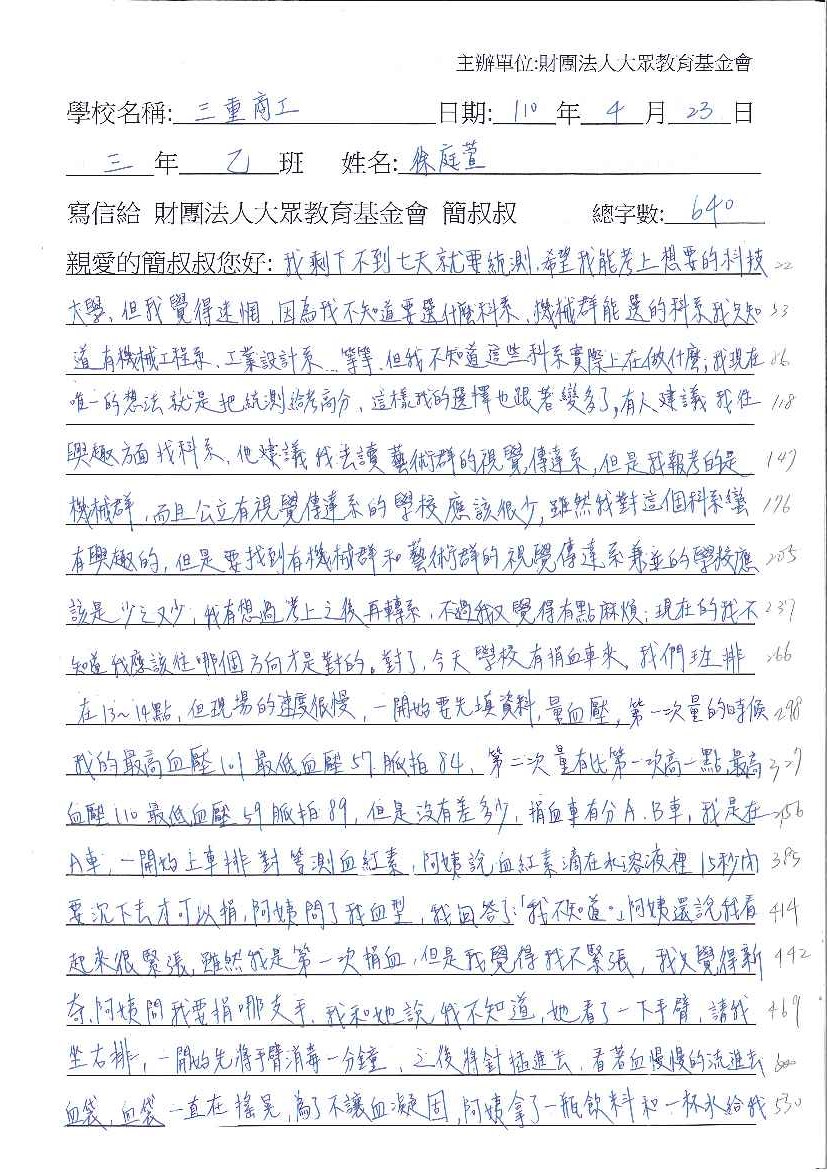 主辦單位:財團法人大眾教育基金會
學校名稱: 三重商工 日期: 110 年 4 月 23 日
三 年 乙 班 姓名: 徐庭萱
寫信給 財團法人大眾教育基金會 簡叔叔 總字數: 640
親愛的簡叔叔您好: 我剩下不到七天就要統測,希望我能考上想要的科技 22
大學,但我覺得迷惘,因為我不知道要選什麼科系,機械群能選的科系我只知 53
道有機械工程系、工業設計系...等等,但我不知道這些科系實際上在做什麼;我現在 86
唯一的想法就是把統測給考高分,這樣我的選擇也跟著變多了,有人建議我往 118
興趣方面找科系,他建議我去讀藝術群的視覺傳達系,但是我報考的是 147
機械群,而且公立有視覺傳達系的學校應該很少,雖然我對這個科系蠻 176
有興趣的,但是要找到有機械群和藝術群的視覺傳達系兼並的學校應 205
該是少之又少,我有想過考上之後再轉系,不過我又覺得有點麻煩;現在的我不 237
知道我應該往哪個方向才是對的。對了,今天學校有捐血車來,我們班排 266
在13~14點,但現場的速度很慢,一開始要先填資料,量血壓,第一次量的時候 298
我的最高血壓101最低血壓57脈拍84,第二次量有比第一次高一點,最高 327
血壓110最低血壓59脈拍89,但是沒有差多少,捐血車有分A、B車,我是在 356
A車,一開始上車排對等測血紅素,阿姨說血紅素滴在水溶液裡15秒內 385
要沉下去才可以捐,阿姨問了我血型,我回答了:「我不知道。」阿姨還說我看 414
起來很緊張,雖然我是第一次捐血,但是我覺得我不緊張,我只覺得新 442
奇,阿姨問我要捐哪支手,我和她說我不知道,她看了一下手臂,請我 469
坐右排,一開始先將手臂消毒一分鐘,之後將針插進去,看著血慢慢的流進去 500
血袋,血袋一直在搖晃,為了不讓血凝固,阿姨拿了一瓶飲料和一杯水給我 530